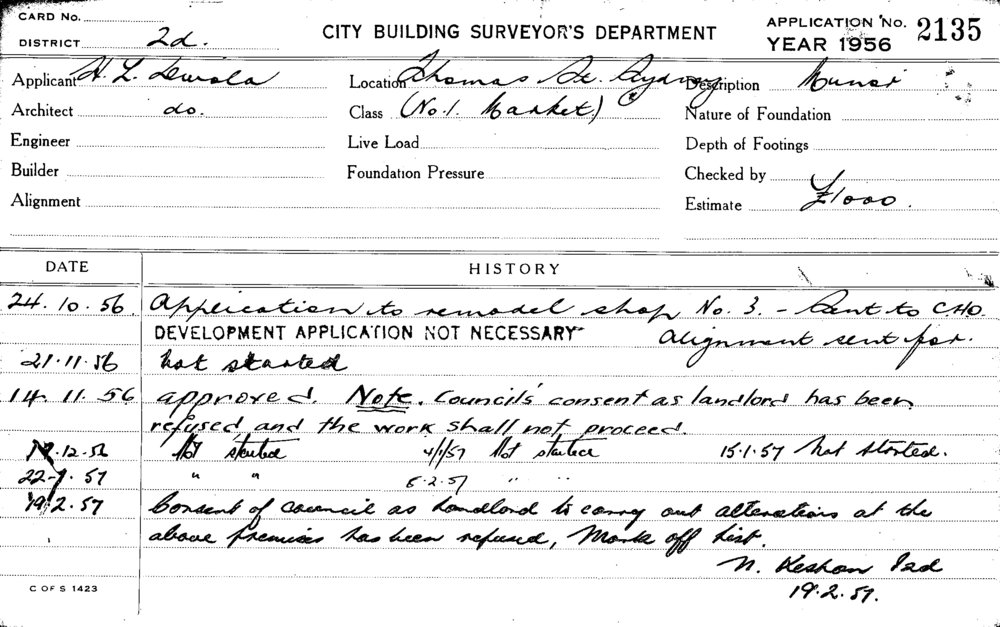 CARD No.
DISTRICT 2d.
CITY BUILDING SURVEYOR'S DEPARTMENT
APPLICATION No. 2135
YEAR 1956
Applicant H. L.
Location Thomas St. Sydney
Description
Architect do.
Class (No. 1. Market)
Nature of Foundation
Engineer
Live Load
Depth of Footings
Builder
Foundation Pressure
Checked by
Alignment
Estimate £1000.
DATE HISTORY
24.10.56. Application to remodel shop No. 3. - Sent to CHO.
DEVELOPMENT APPLICATION NOT NECESSARY Alignment sent for.
21.11.56 Not started
14.11.56 approved. Note. Council's consent as landlord has been
refused and the work shall not proceed.
12.56 Not started 4/1/57 Not started 15.1.57 Not started.
22-1.57 " " 5.2.57 " "
19.2.57 Consent of council as landlord to carry out alterations at the
above premises has been refused, Mark off list.
N.
19.2.57.
C OF S 1423